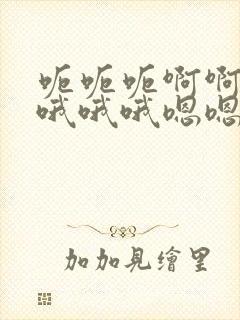 呃呃呃啊啊
哦哦哦嗯嗯
加加見繪里